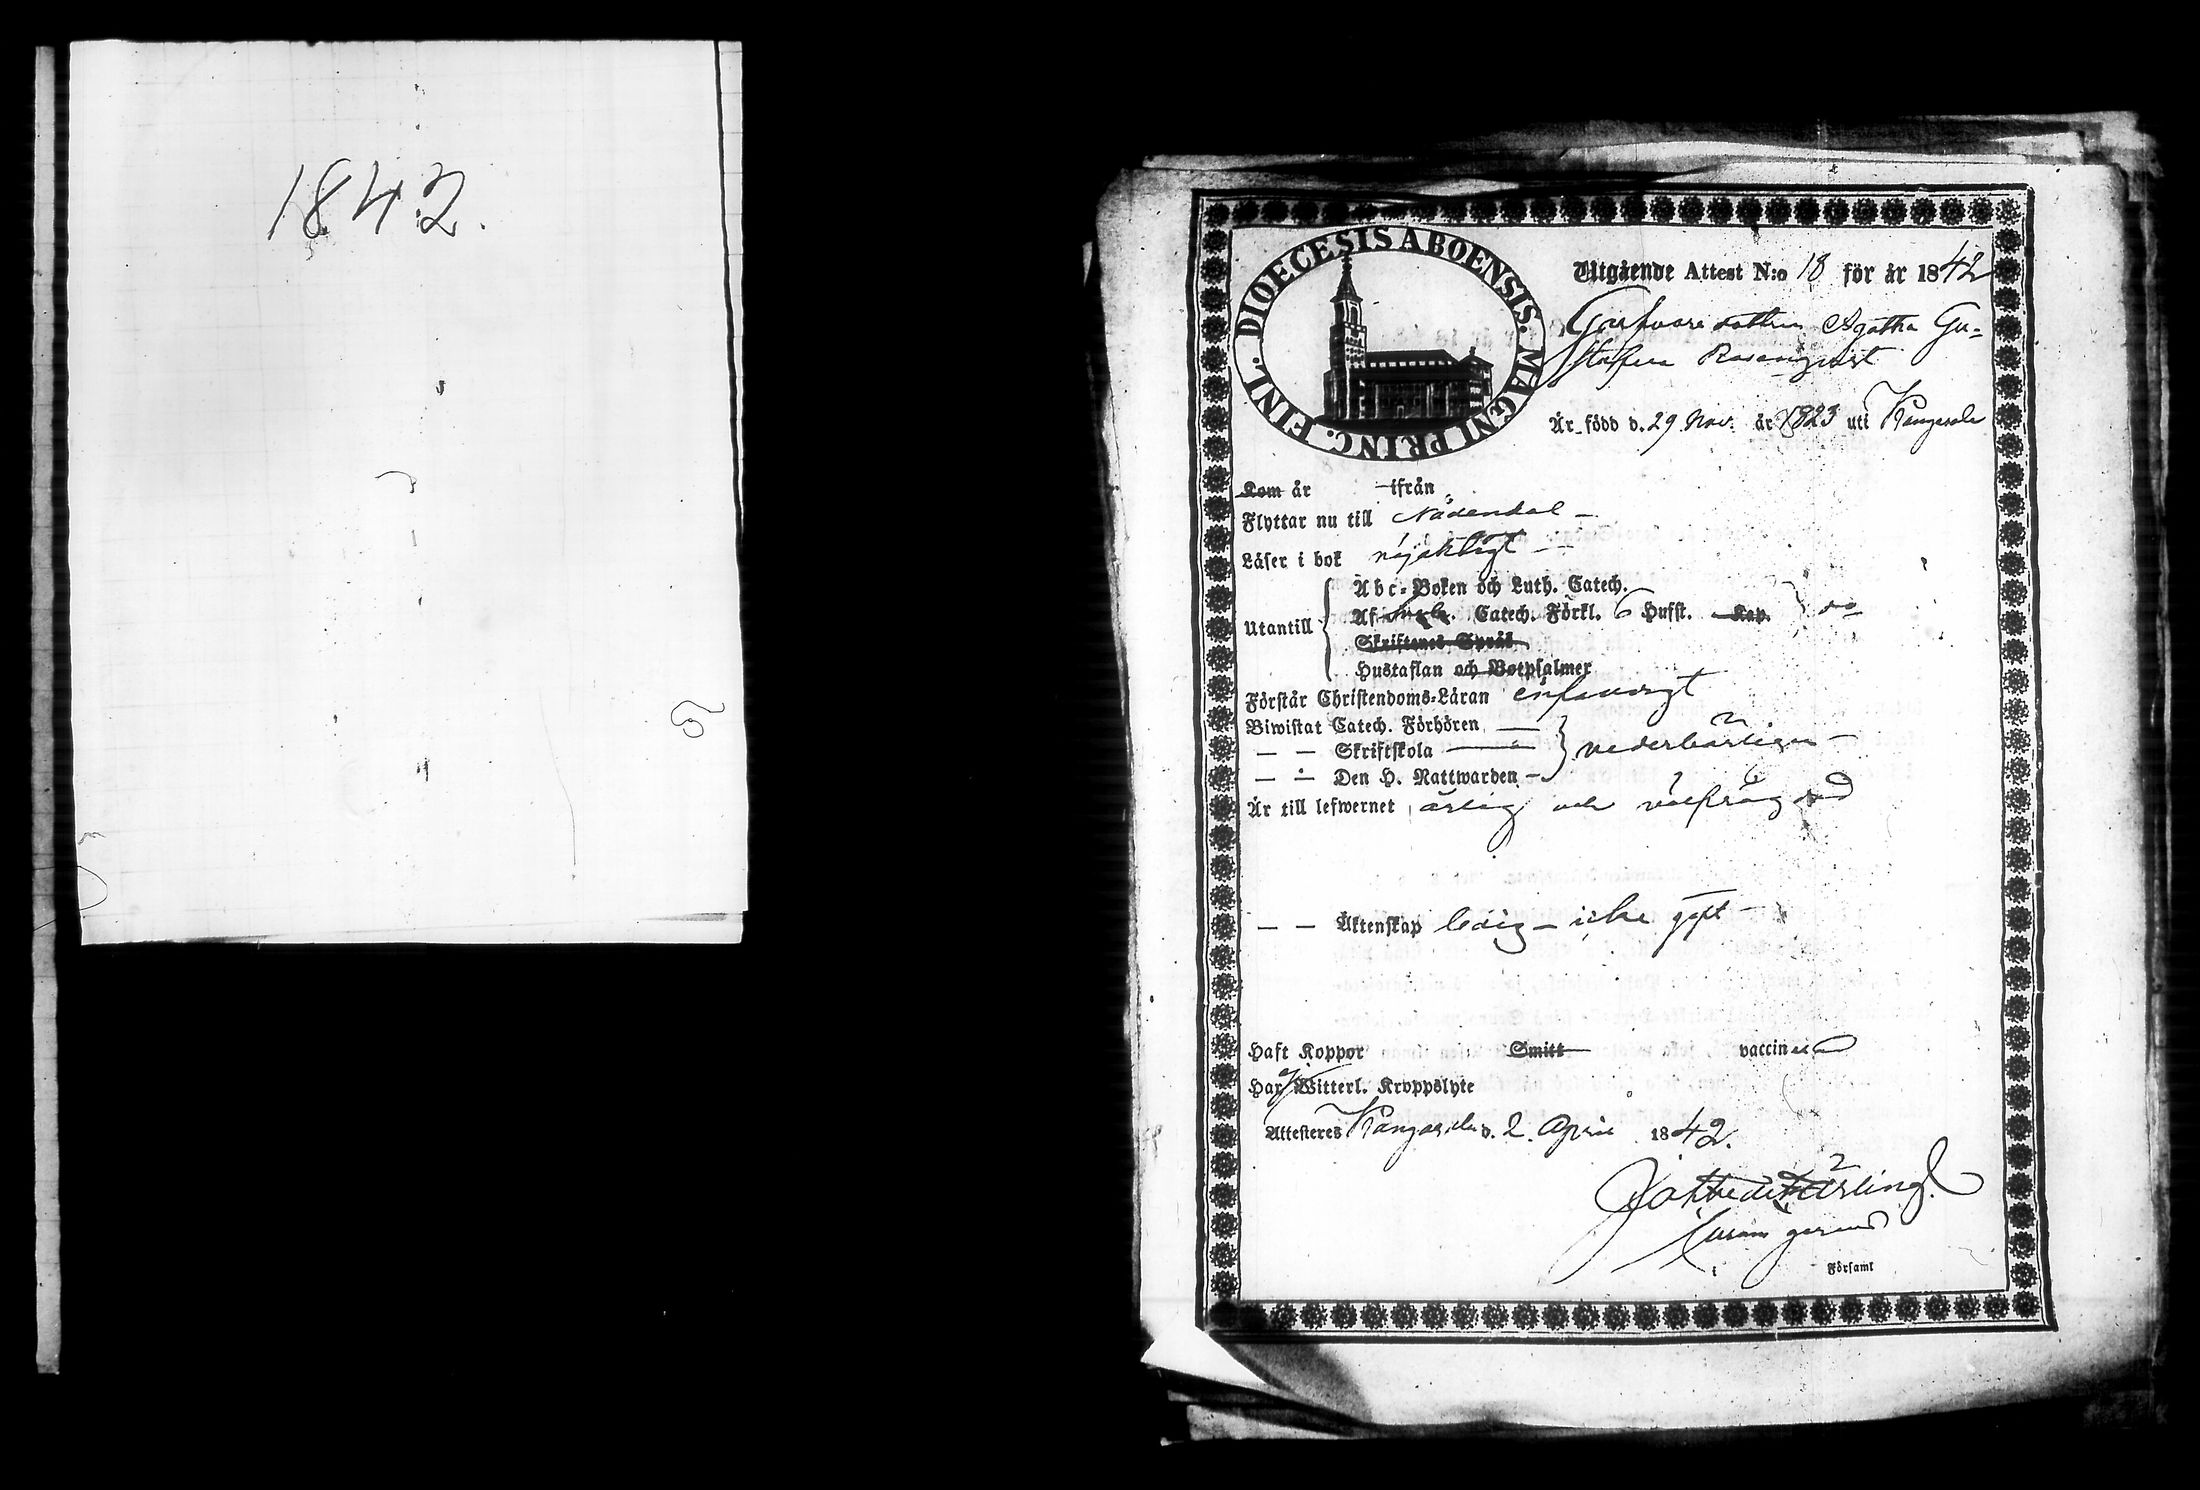 1842.
DIOECESIS ABOENSIS. MAGNI PRINC. FINL.
Utgående Attest N:o 18 för år 1842
Garfvare dottren Agatha Gu=
stafva Rosenqvist
Är född d. 29 Nov. år 1823 uti Kangasala
Kom år ifrån
Flyttar nu till Nådendal –
Läser i bok nöjaktigt –
Abc=Boken och Luth. Catech.
Utantill Af Catech. Förkl. 6 Hufst. Kap.
Skriftenes Språk
Hustaflan och Botpsalmer
Förstår Christendoms=Läran enfaldigt
Biwistat Catech. Förhören —
— — Skriftskola — nederbörligen –
— — Den H. Nattwarden –
Är till lefwernet ärlig och välfrägdad
— — Äktenskap ledig – icke gift –
Haft Koppor Smitt vaccinerad
Har ej Witterl. Kroppslyte
Attesteres Kangasala d. 2 April 1842.
i Församl